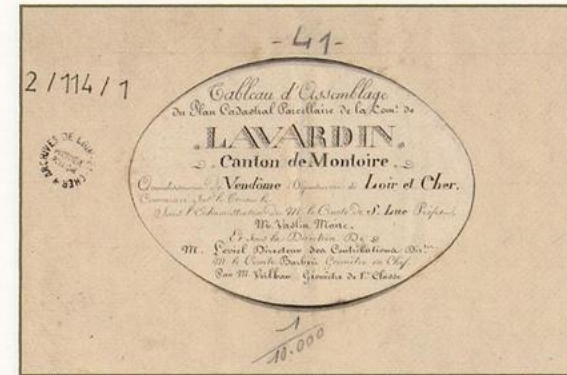 - 41 -
2 / 114 / 1
ARCHIVES DE LOIR-ET-CHER
Tableau d'Assemblage
du Plan Cadastral Parcellaire de la Com.e de
LAVARDIN.
Canton de Montoire.
Arrondissement de Vendôme Département de Loir et Cher.
Terminé sur le Terrain le
Sous l'Administration de M. le Comte de S.t Luc Préfet
M. Maire.
Et sous la Direction De
M. Leviel Directeur des Contributions Dir.tes
M. le Comte Géomètre en Chef.
Par M. Géomètre de 1.re Classe
1
10.000